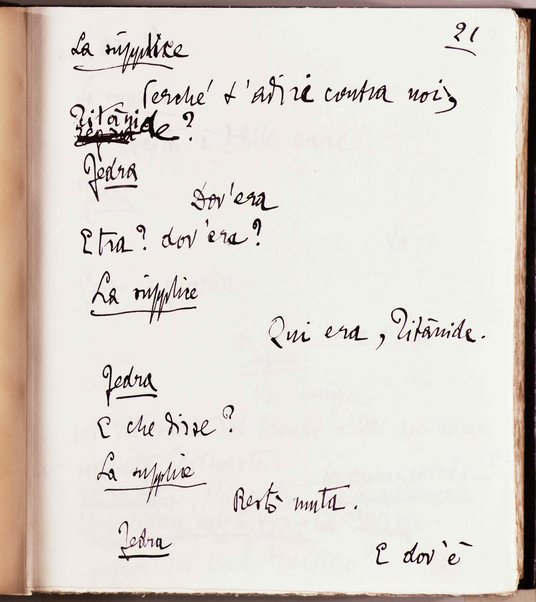 21
La supplice
Perché t'adiri contra noi,
Titànide?
Fedra
Dov'era
Etra? dov'era?
La supplice
Qui era, Titànide.
Fedra
E che disse?
La supplice
Restò muta.
Fedra
E dov'è